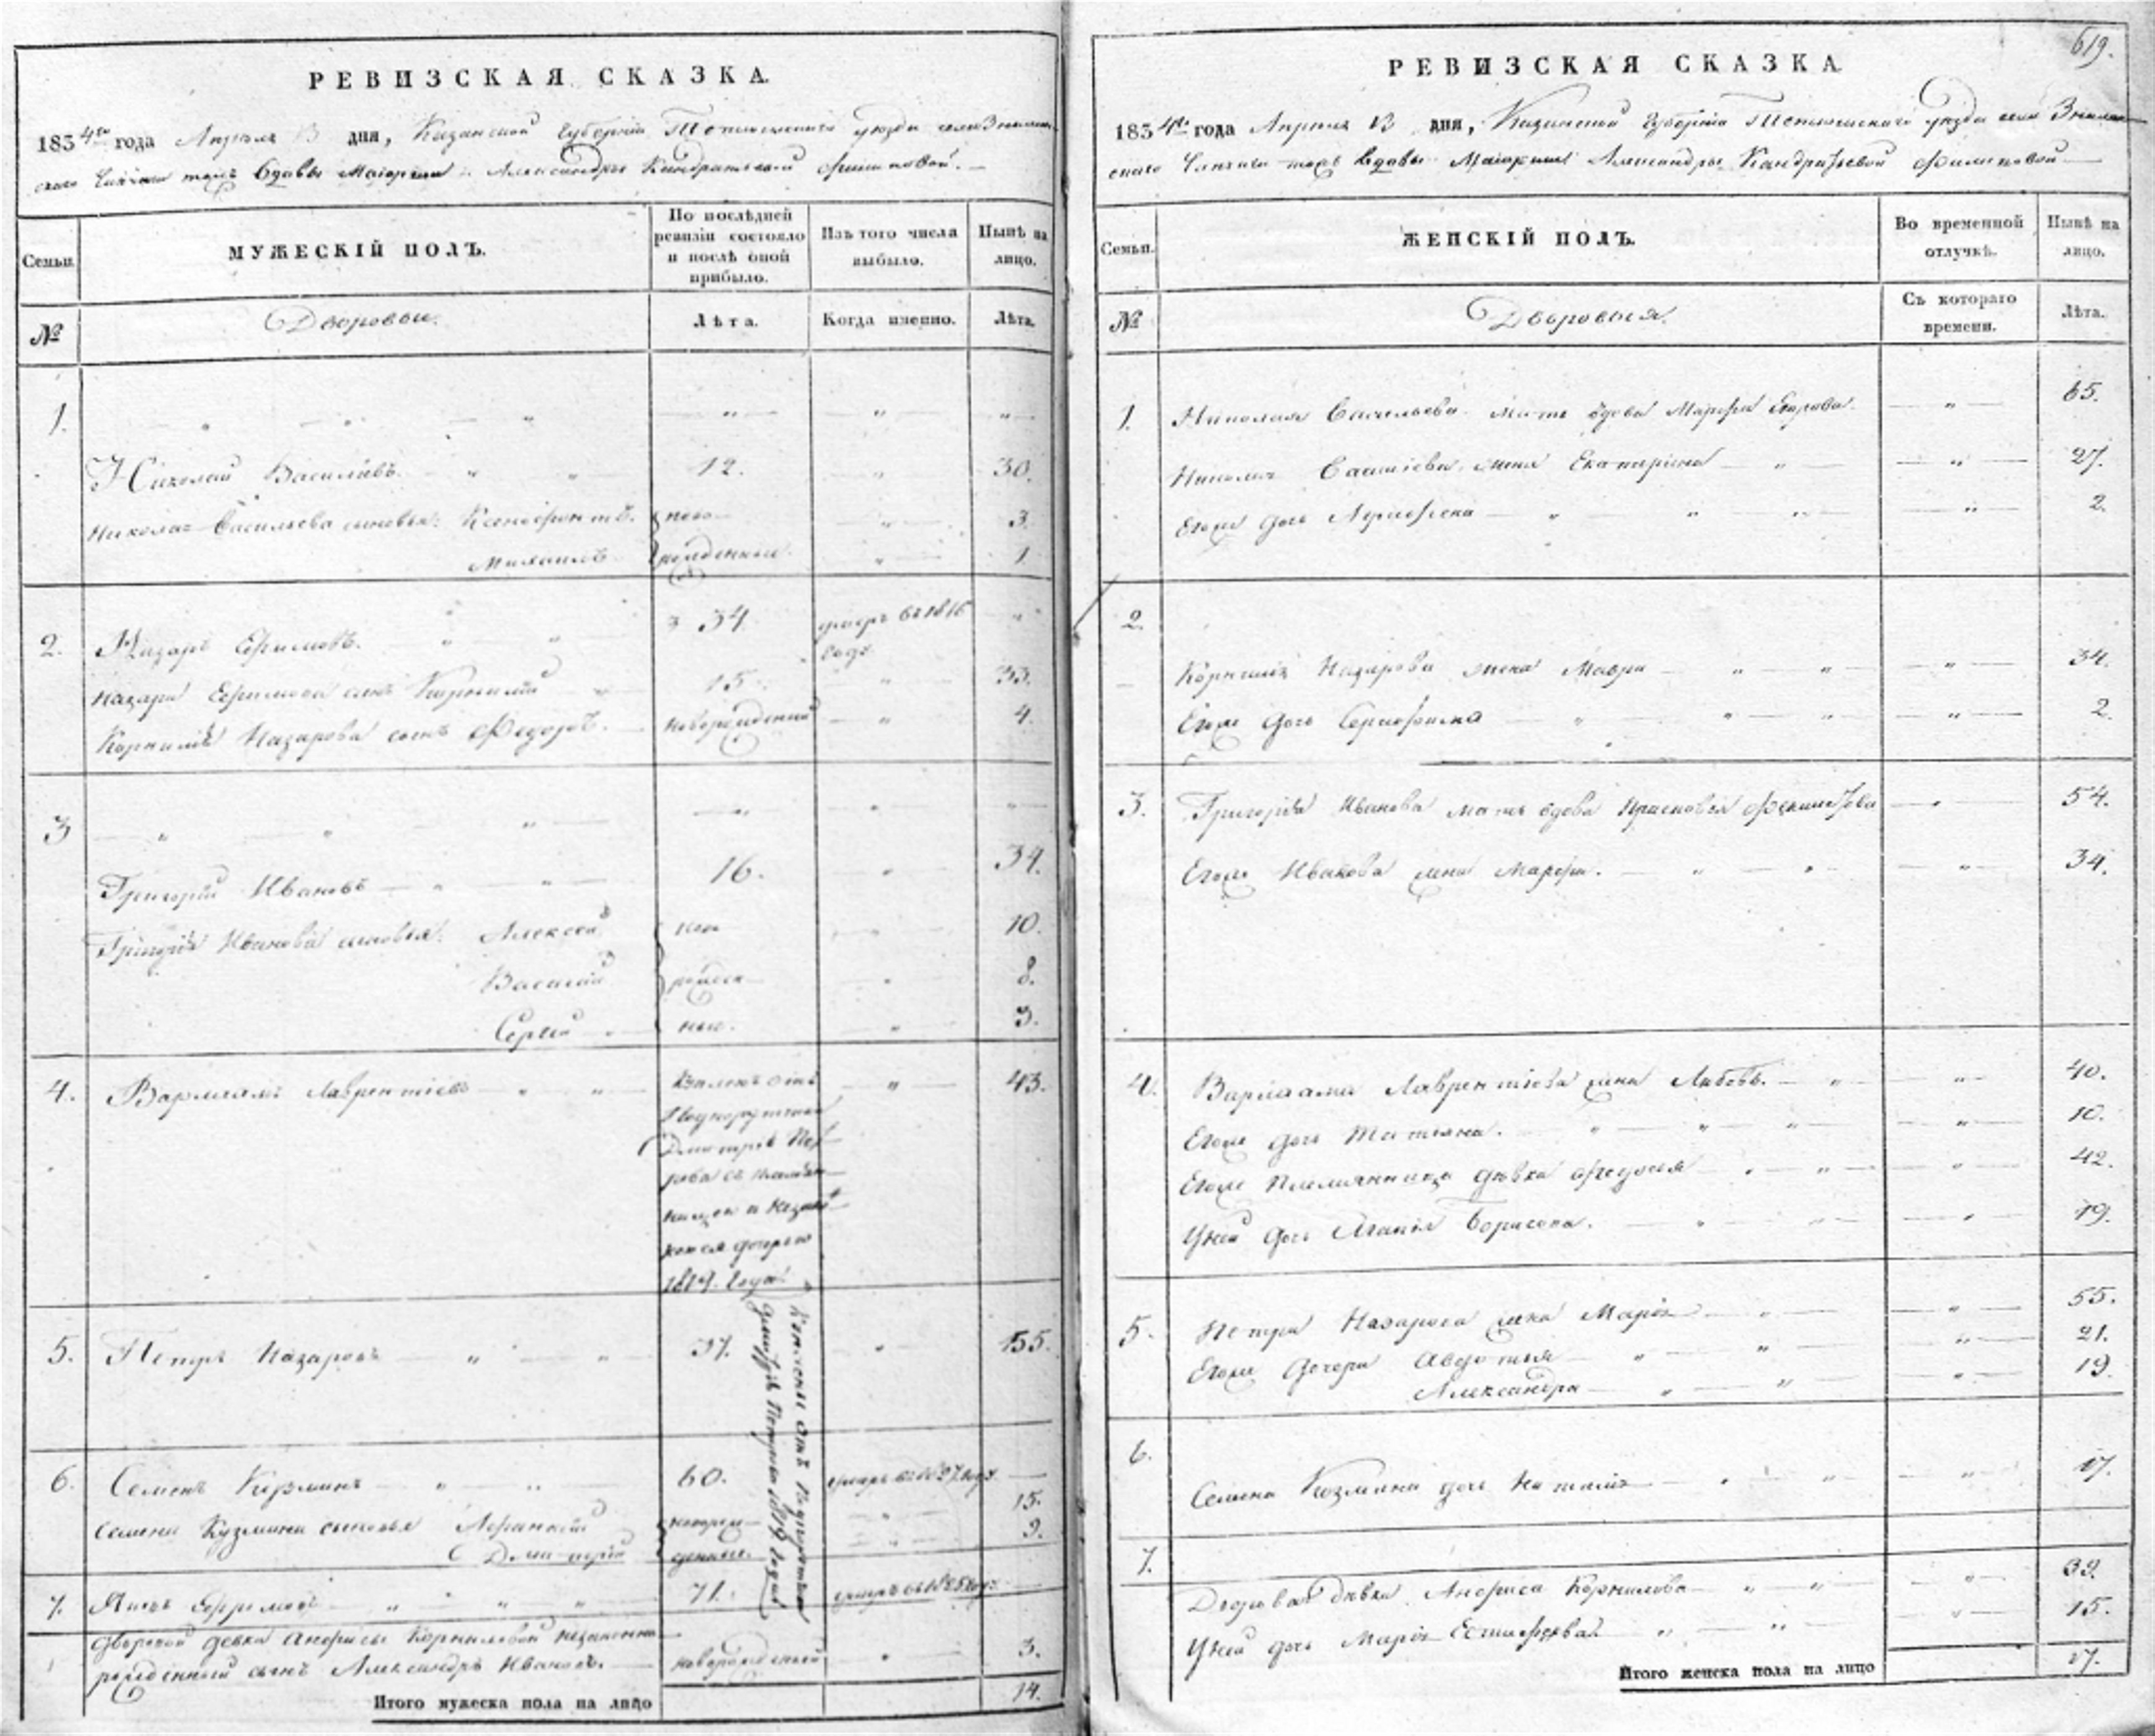 РЕВИЗСКАЯ СКАЗКА.
1834го года Апреля 13 дня, Казанской Губернии уезда села
вдовы Маіорши Александры Кандратьевой Филиповой.
Семьи.
МУЖЕСКІЙ ПОЛЪ.
По послѣдней ревизіи состояло и послѣ оной прибыло.
Изъ того числа выбыло.
Нынѣ на лицо.
№
Дворовыи.
Лѣта.
Когда именно.
Лѣта.
1.
Николай Васильивъ. 12. 30.
Николая Васильева сыновья: Ксенофонтъ. ново 3.
Михаилъ рожденныи. 1
2. Назаръ Ефимовъ. 34 умеръ въ 1816 годе
Назара Ефимова сынъ Корнилій 15. 33.
Корнилія Назарова сынъ Федоръ. новорожденный 4.
3
Григорій Ивановъ 16. 34.
Григорія Иванова сыновья: Алексей ново 10.
Василій рожден 8.
Сергей ныи. 3.
4. Варлаамъ Лаврентіевъ 43.
Купленъ отъ
Подпорутчика
Дмитрія Пет
рова съ племян
ницею и
дочерью
5. Петръ Назаровъ 37. 55.
Куплены отъ Подпорутчика
Дмитрія Петрова 1819 года
6. Семенъ Кузминъ 60. умеръ въ 1827 году
Семена Кузмина сыновья новорож 15.
Дмитрій денные. 9.
7. Ефимовъ 71. умеръ въ 1825 году
дворовой девки Анфисы Корниловой незаконно
рожденный сынъ Александръ Ивановъ. новорожденный 3.
Итого мужеска пола на лицо 14.
619.
РЕВИЗСКАЯ СКАЗКА
1834го года Апреля 13 дня, Казанской Губерніи уезда села
вдовы Маіорши Александры Кандратьевой Филиповой
Семьи.
ЖЕНСКІЙ ПОЛЪ.
Во временной отлучкѣ.
Нынѣ на лицо.
№
Дворовыя.
Съ котораго времени.
Лѣта.
1. Николая Васильева мать вдова Марфа Егорова. 65.
Николая Васильева жена Екатерина 27.
Егоже дочь 2.
2.
Корнилія Назарова жена Мавра 34.
Егоже дочь 2.
3. Григорія Иванова мать вдова Прасковья 54.
Егоже Иванова жена Марфа. 34.
4. Варлаама Лаврентіева жена Любовь. 40.
Егоже дочь Татьяна. 10.
Егоже племянница дѣвка Федосья 42.
У ней дочь Борисова. 19.
5. Петра Назарова жена Марія 55.
Егоже дочери Авдотья 21.
Александра 19.
6.
Семена Козмина дочь Наталія 17.
7.
Дворовая дѣвка Анфиса Корнилова 39.
У ней дочь Марія 15.
Итого женска пола на лицо 17.